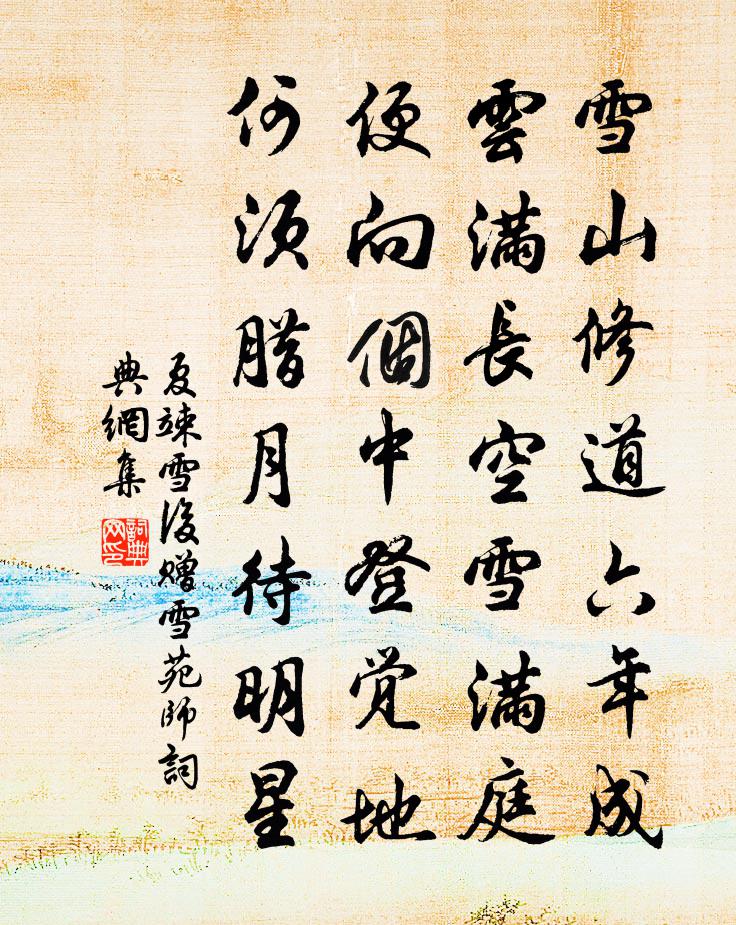 雪山修道六年成
雲滿長空雪滿庭
便向個中登覺地
何須腊月待明星
夏竦雪後贈雪苑師詞
典網集
詞典
网印